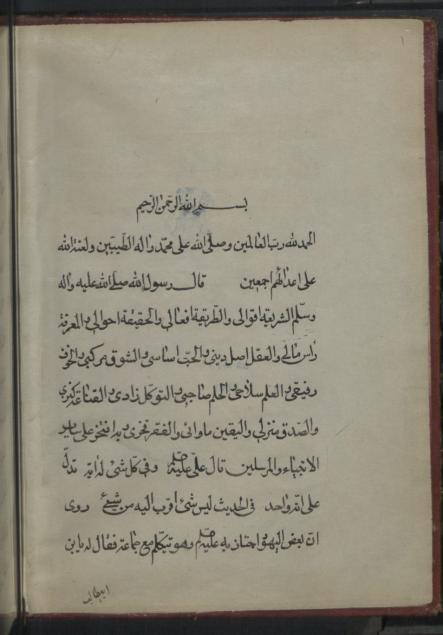 بسم الله الرحمن الرحيم
الحمد لله رب العالمين وصلى الله على محمد واله الطيبين ولعنة الله
على اعدائهم اجمعين قال رسول الله صلى الله عليه واله
وسلم الشريعة اقوالي والطريقة افعالي والحقيقة احوالي والمعرفة
راس مالي والعقل اصل ديني والحب اساسي والشوق مركبي والخوف
رفيقي والعلم سلاحي والحلم صاحبي والتوكل زادي والقناعة كنزي
والصدق منزلي واليقين ماواي والفقر فخري وبه افتخر على ساير
الانبياء والمرسلين قال علي عليه وفي كل شئ له اية تدل
على انه واحد في الحديث ليس شئ اقرب اليه من شئ روى
ان بعض اليهود اجتاز به عليه وهو يتكلم مع جماعة فقال له يا بن
ابيطالب